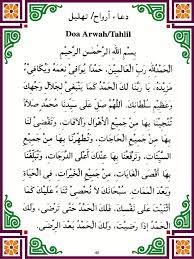 دعاء أرواح/ تهليل
Doa Arwah/Tahlil
بِسْمِ اللهِ الرَّحْمٰنِ الرَّحِيْمِ
الْحَمْدُ لِلّٰهِ رَبِّ الْعَالَمِيْنَ، حَمْدًا يُوَافِيْ نِعَمَهُ وَيُكَافِئُ
مَزِيْدَهُ، يَا رَبَّنَا لَكَ الْحَمْدُ كَمَا يَنْبَغِيْ لِجَلَالِ وَجْهِكَ
وَعَظِيْمِ سُلْطَانِكَ. اَللّٰهُمَّ صَلِّ عَلَى سَيِّدِنَا مُحَمَّدٍ صَلَاةً
تُنْجِيْنَا بِهَا مِنْ جَمِيْعِ الْأَهْوَالِ وَالْآفَاتِ، وَتَقْضِيْ لَنَا
بِهَا مِنْ جَمِيْعِ الْحَاجَاتِ، وَتُطَهِّرُنَا بِهَا مِنْ جَمِيْعِ
السَّيِّئَاتِ، وَتَرْفَعُنَا بِهَا عِنْدَكَ أَعْلَى الدَّرَجَاتِ، وَتُبَلِّغُنَا
بِهَا أَقْصَى الْغَايَاتِ مِنْ جَمِيْعِ الْخَيْرَاتِ فِي الْحَيَاةِ
وَبَعْدَ الْمَمَاتِ. سُبْحَانَكَ لَا نُحْصِيْ ثَنَاءً عَلَيْكَ كَمَا
أَثْنَيْتَ عَلَى نَفْسِكَ، فَلَكَ الْحَمْدُ حَتَّى تَرْضَى، وَلَكَ
الْحَمْدُ إِذَا رَضِيْتَ، وَلَكَ الْحَمْدُ بَعْدَ الرِّضَى،